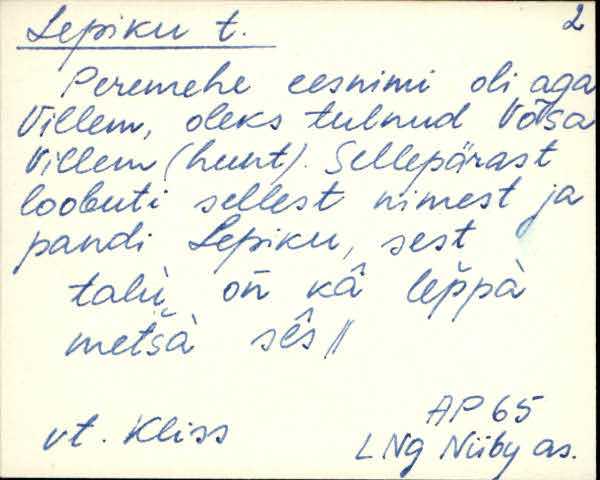 Lepiku t. 2
Peremehe eesnimi oli aga
Villem, oleks tulnud Võsa
Villem (hunt). Sellepärast
loobuti sellest nimest ja
pandi Lepiku, sest
talù on̄ kâ lep̆pà
met̆sà sês //
vt. Kliss
AP 65
LNg Niiby as.